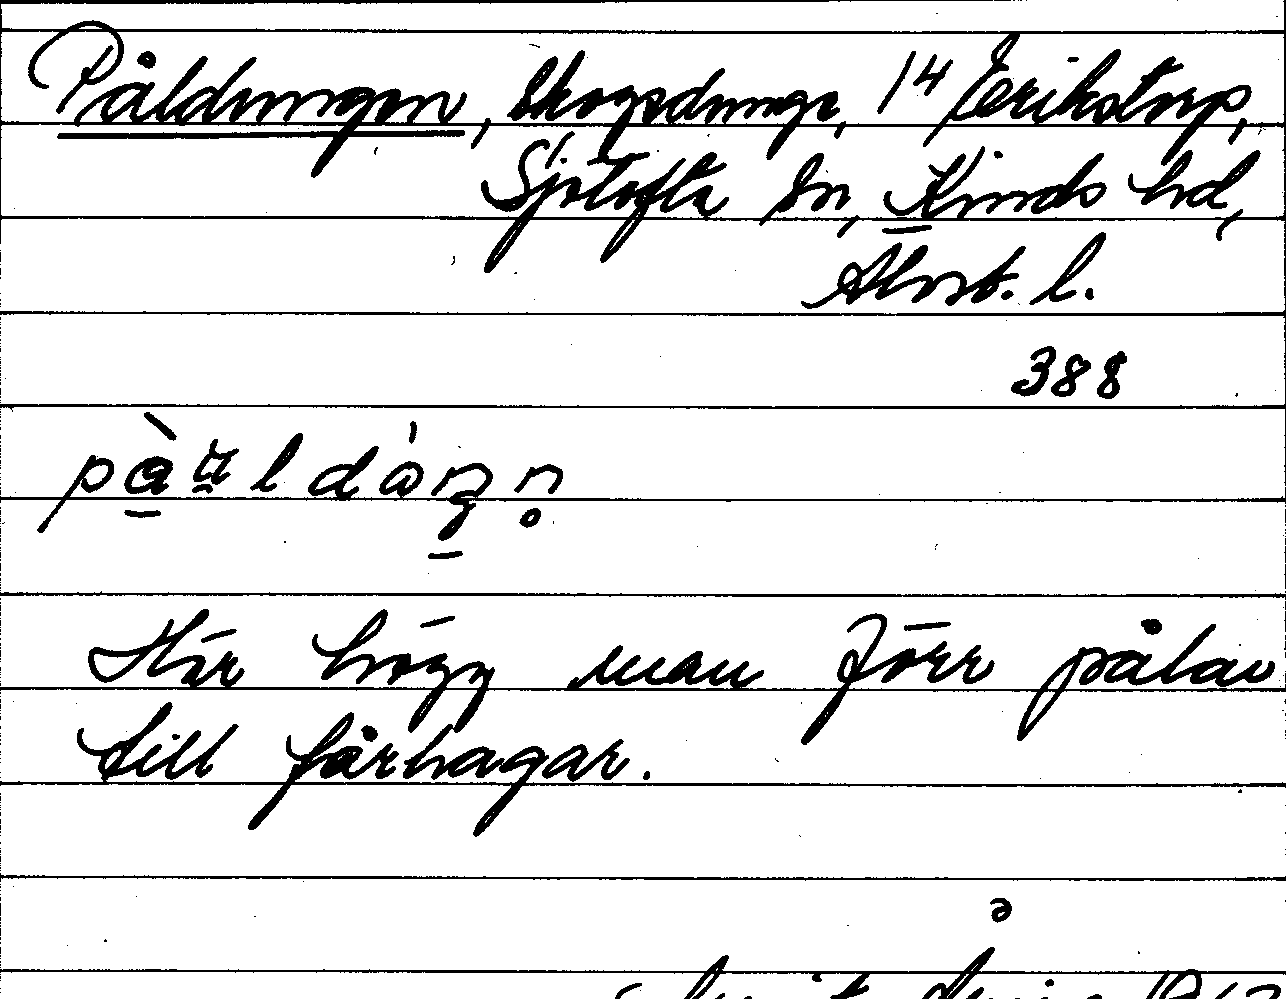 Påldungen, Skogsdunge, 14 Erikstorp,
Sjötofta sn, Kinds hd,
Älvsb. l.
388
Här högg man förr pålar
till fårhagar.